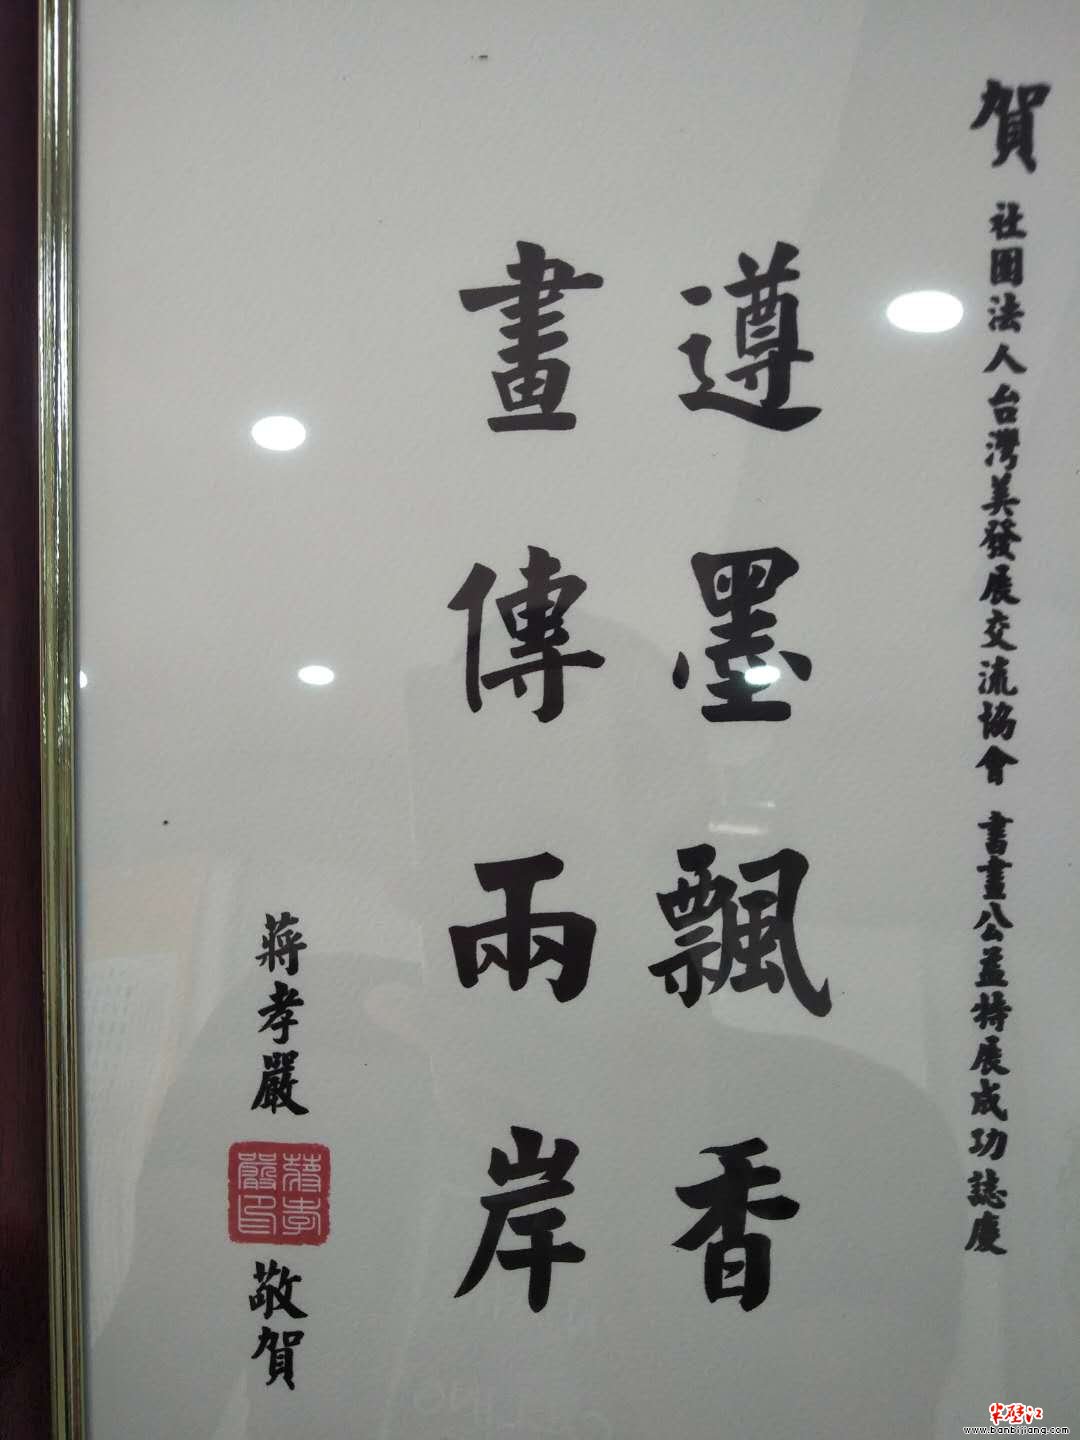 賀 社團法人台灣美發展交流協會 書畫公益特展成功誌慶
遵墨飄香
畫傳兩岸
蔣孝嚴
蔣孝嚴印
敬賀
半壁江
www.banbijiang.com